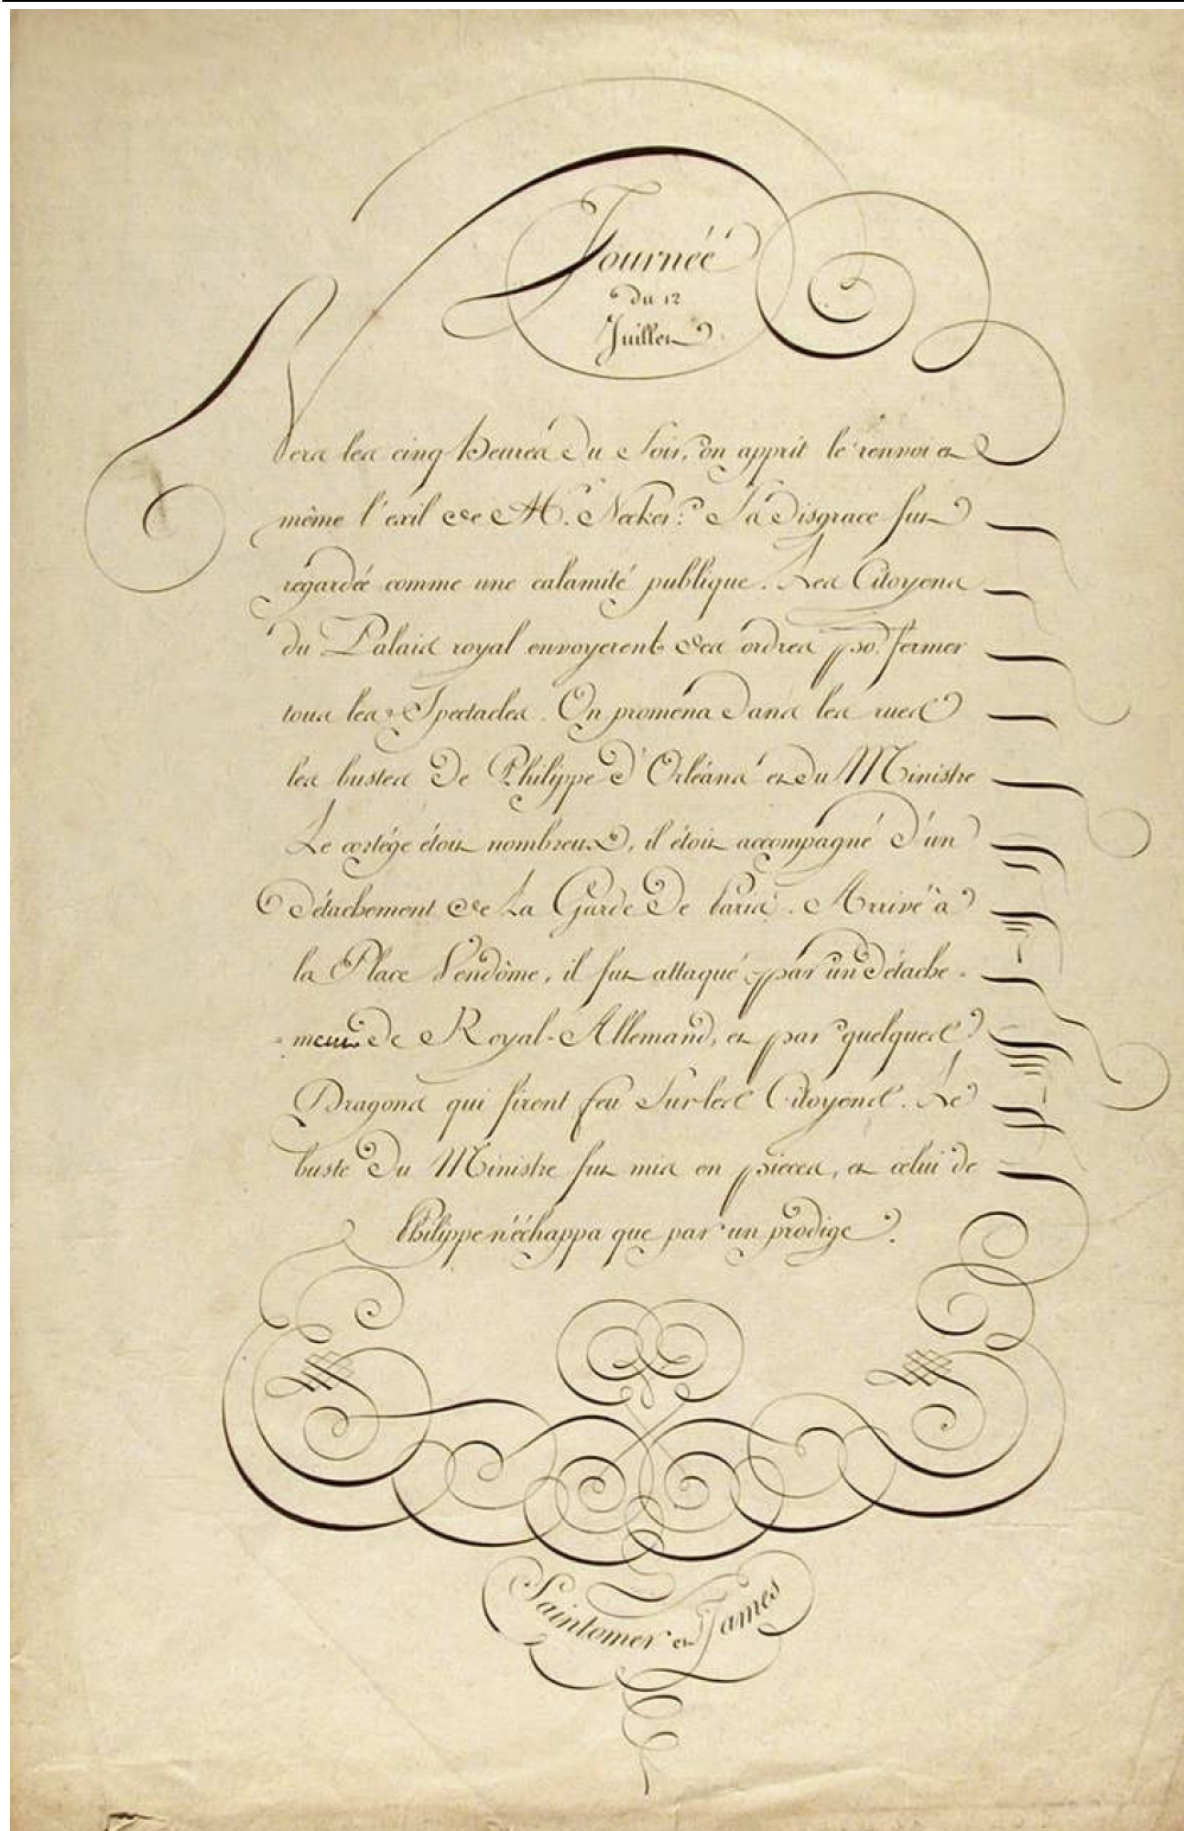 Journée
du 12
Juillet
Vers les cinq heures du Soir, on apprit le renvoi et
même l'exil de M. Necker: Sa disgrace fut
regardée comme une calamité publique. Les Citoyens
du Palais royal envoyerent des ordres po. fermer
tous les Spectacles. On promena dans les rues
les bustes de Philippe d'Orléans et du Ministre
Le cortége étoit nombreux, il étoit accompagné d'un
détachement de La Garde de Paris. Arrivé à
la Place Vendôme, il fut attaqué par un détache-
-ment de Royal-Allemand, et par quelques
Dragons qui firent feu Sur les Citoyens. Le
buste du Ministre fut mis en pieces, et celui de
Philippe n'échappa que par un prodige.
Saintomer et James